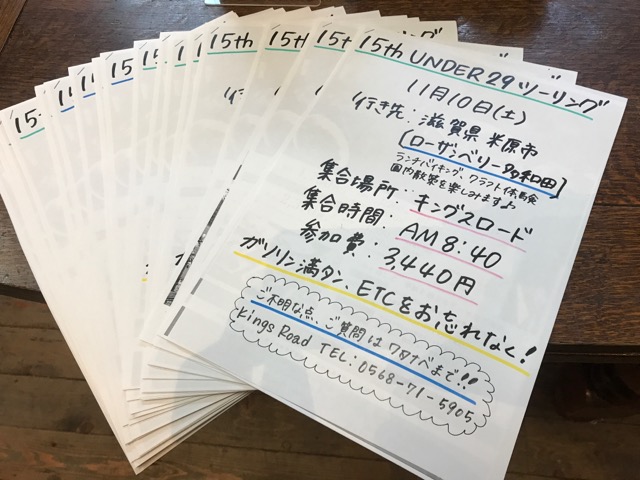 15th UNDER 29 ツーリング
11月10日(土)
行き先：滋賀県 米原市
[ローザンベリー多和田]
ランチバイキング、クラフト体験
園内散策を楽しみます♪
集合場所：キングスロード
集合時間：AM8:40
参加費：3,440円
ガソリン満タン、ETCをお忘れなく！
ご不明な点、ご質問はワタナベまで!!
Kings Road TEL：0568-71-5905
15th
15th
15th